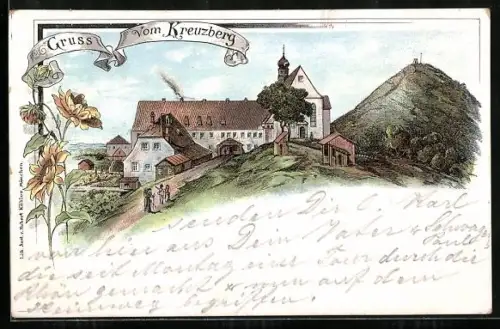 Gruss vom Kreuzberg
senden Dir l. Karl
von hier aus Dein Vater u. Schwager
die seit Montag eine Tour durch die
Rhön gemacht u. nun auf dem
Heimweg begriffen.